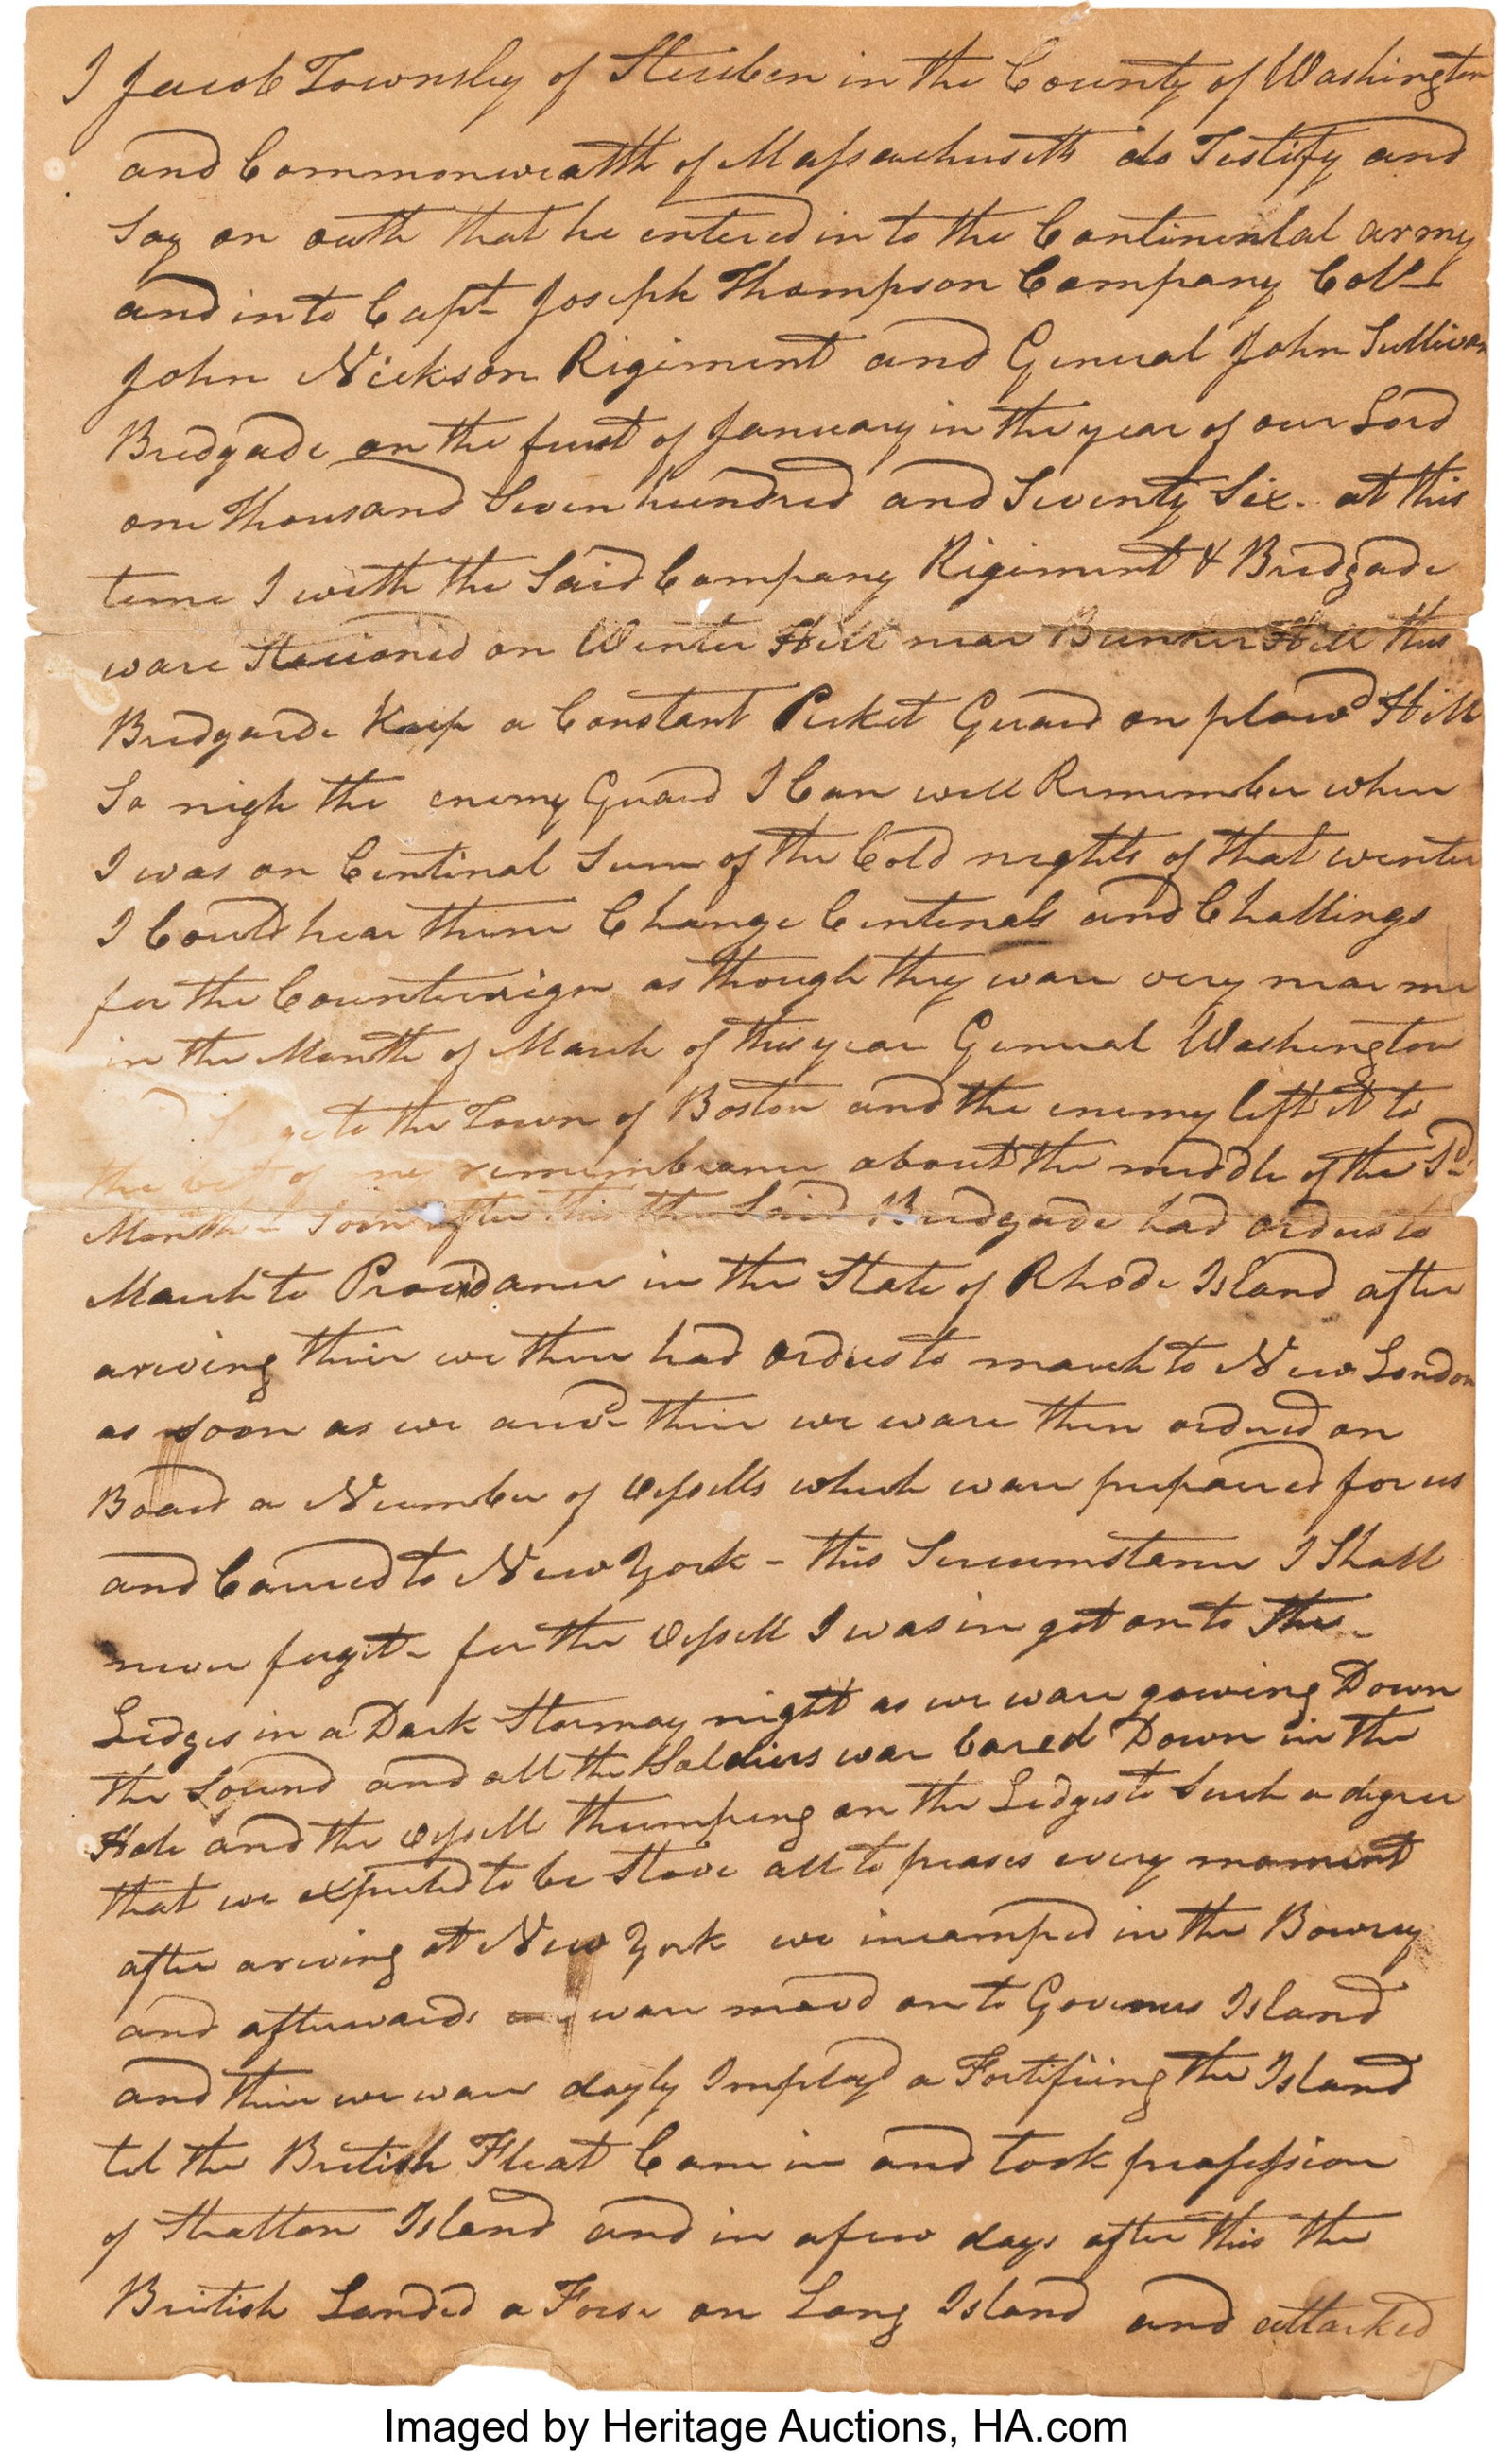 I Jacob Townsley of Steuben in the County of Washington
and Commonwealth of Massachusetts do Testify and
Say on oath that he entered in to the Continental army
and in to Capt Joseph Thompson Company Coll
John Nickson Rigiment and General John Sullivan
Bredgade on the furst of January in the year of our Lord
one Thousand Seven hundred and Seventy Six. at this
time I with the Said Company Rigiment & Bredgade
ware Stacioned on Winter Hill near Bunker Hill this
Bredgarde Keep a Constant Picket Guard on plowd Hill
So nigh the enemy Guard I Can well Remember when
I was on Centinal Sum of the Cold nights of that winter
I Could hear them Change Centenals and Challings
for the Countersign as though they ware very near me
in the Month of March of this year General Washington
to the Town of Boston and the enemy left it to
the best of my remembrance about the middle of the Sd
Month Soon after this the Said Bredgade had orders to
March to Providance in the State of Rhode Island after
ariving their we then had orders to march to New London
as soon as we arivd their we ware then ordered on
Board a Number of Vessells which ware prepaired for us
and Carried to New York - this Sircumstance I Shall
never forgit - for the Vessell I was in got on to the
Ledges in a Dark Stormay night as we ware gowing Down
the Sound and all the Saldiers war bared Down in the
Hole and the Vessell thumping on the Ledges to Such a degree
that we expected to be Stove all to peases every moment
after ariving at New York we incamped in the Bowrey
and afterwards ware movd on to Govenners Island
and their we ware dayly Imployd a Fortifiing the Island
til the British Fleat Came in and took possession
of Stratton Island and in a few days after this the
British Landed a Forse on Long Island and attacked
Imaged by Heritage Auctions, HA.com